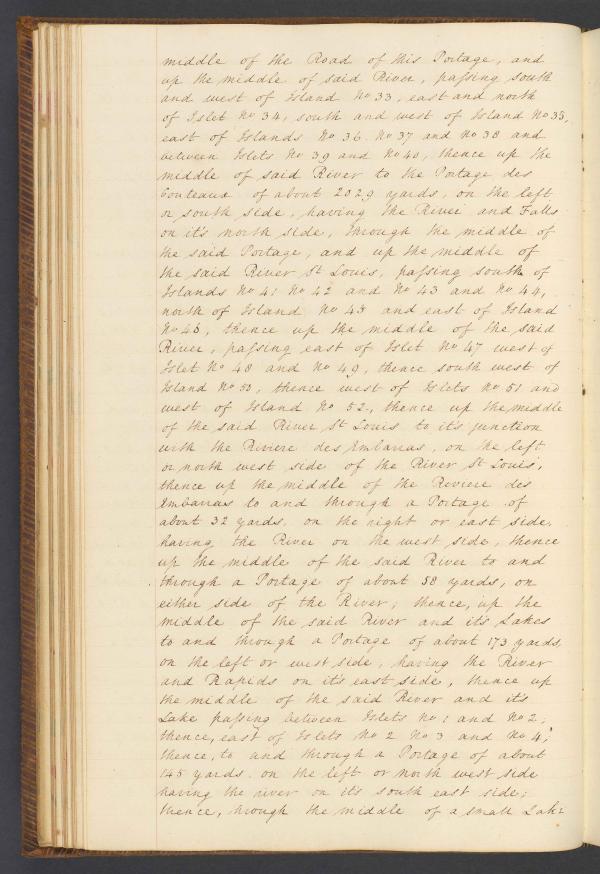 middle of the Road of this Portage, and
up the middle of said River, passing south
and west of Island No 33, east and north
of Islet No 34, south and west of Island No 35,
east of Islands No 36. No 37 and No 38 and
between Islets No 39 and No 40, thence up the
middle of said River to the Portage des
Couteaux of about 2029 yards, on the left
or south side, having the River and Falls
on it's north side, through the middle of
the said Portage, and up the middle of
the said River St Louis, passing south of
Islands No 41 No 42 and No 43 and No 44,
north of Island No 45 and east of Island
No 46, thence up the middle of the said
River, passing east of Islet No 47 west of
Islet No 48 and No 49, thence south west of
Island No 50, thence west of Islets No 51 and
west of Island No 52, thence up the middle
of the said River St Louis to it's junction
with the Riviere des Embarras, on the left
or north west side of the River St Louis,
thence up the middle of the Riviere des
Embarras to and through a Portage of
about 32 yards, on the right or east side,
having the River on the west side, thence
up the middle of the said River to and
through a Portage of about 58 yards, on
either side of the River; thence, up the
middle of the said River and it's Lakes
to and through a Portage of about 173 yards
on the left or west side, having the River
and Rapids on it's east side, thence up
the middle of the said River and it's
Lake passing between Islets No 1 and No 2;
thence, east of Islets No 2 No 3 and No 4;
thence, to and through a Portage of about
145 yards. on the left or north west side
having the river on it's south east side;
thence, through the middle of a small Lake